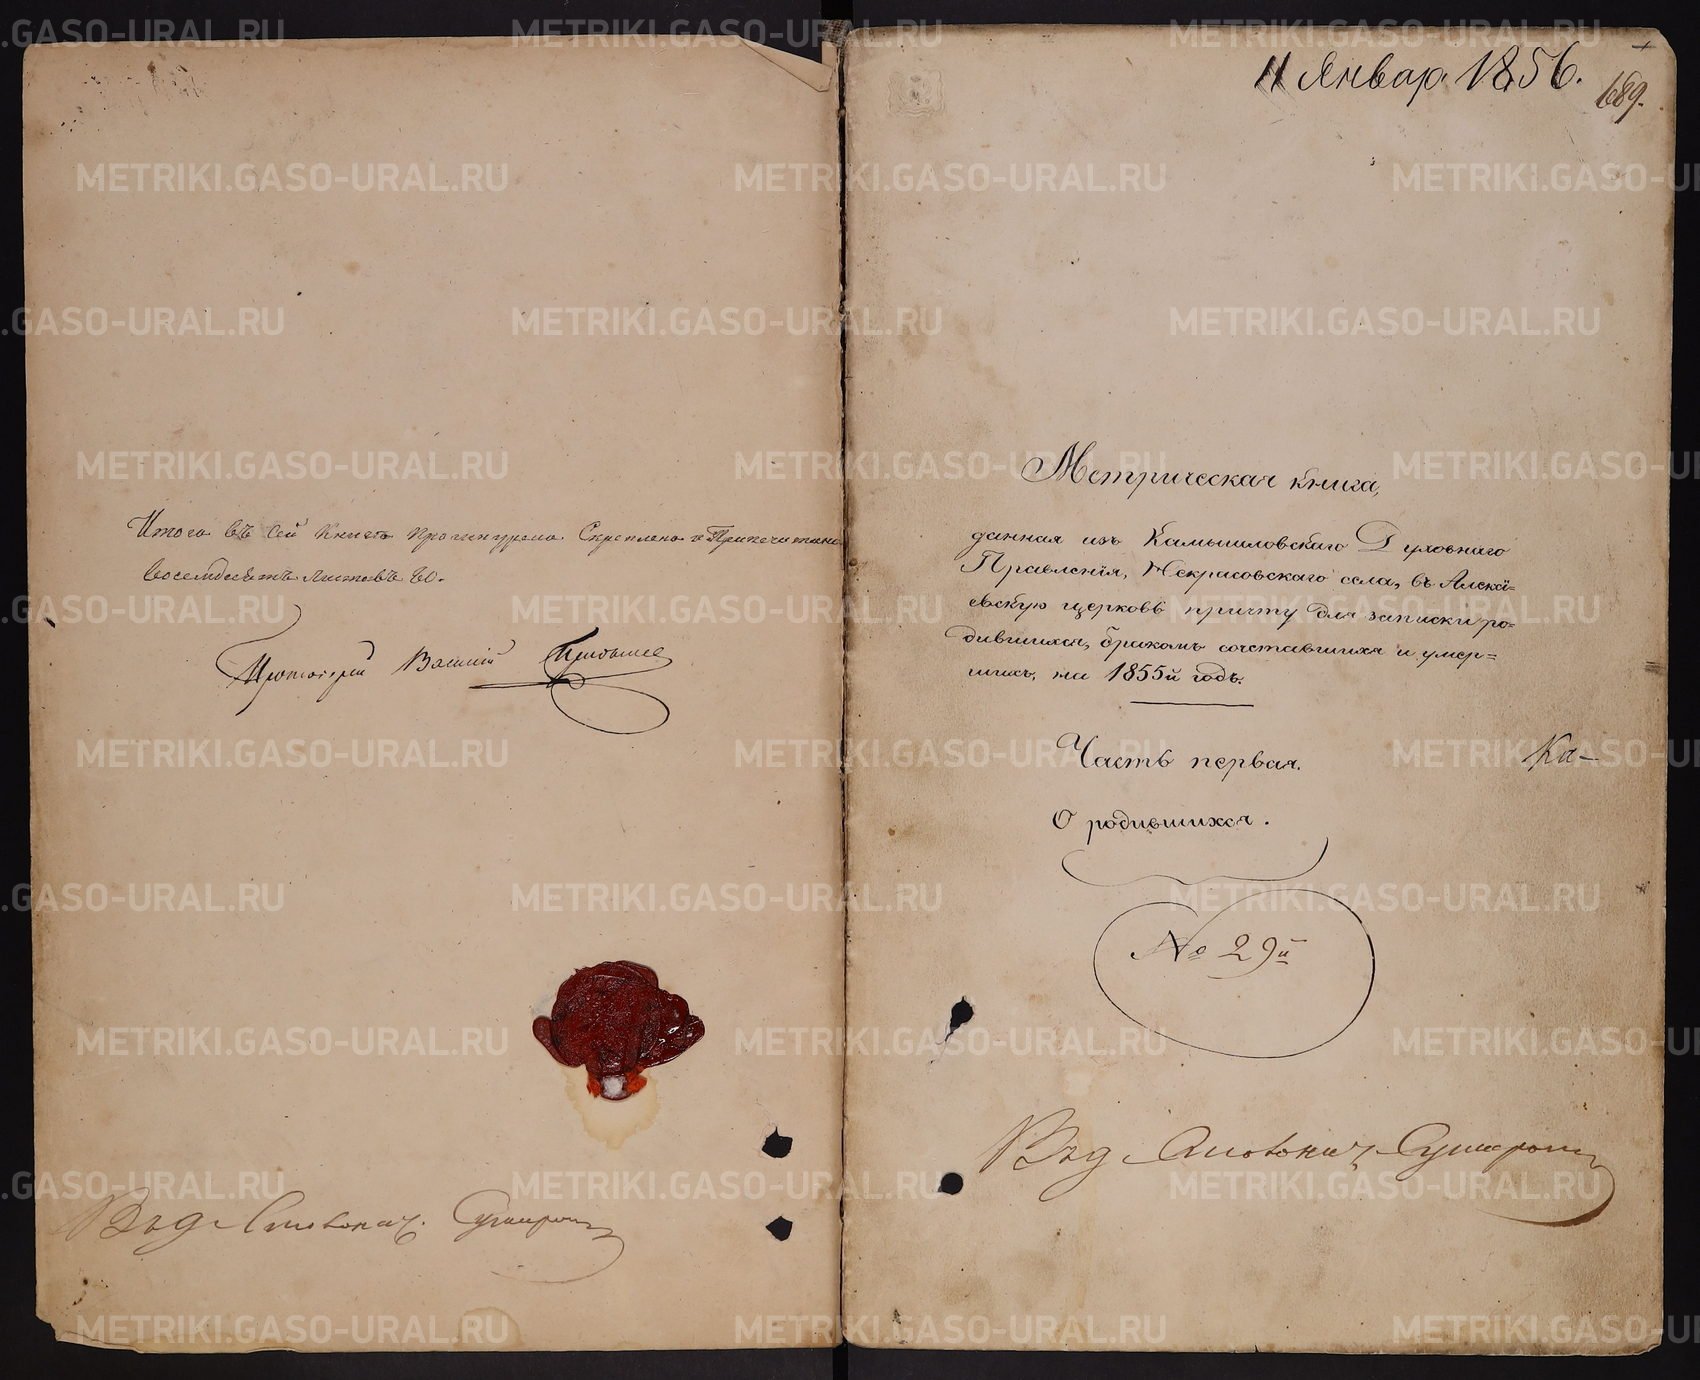 Итого въ сей книгѣ пронумеровано Скреплено и Припечатано
восемдесятъ листовъ 80.
Протоіерей Василій
11 Январ. 1856.
689.
Метрическая книга,
данная изъ Камышловскаго Духовнаго
Правленія, Некрасовскаго села, въ Алексі-
евскую церковь причту для записки ро=
дившихся, бракомъ сочетавшихся и умер=
шихъ, на 1855й годъ.
Часть первая.
О родившихся.
Ка-
№ 29й